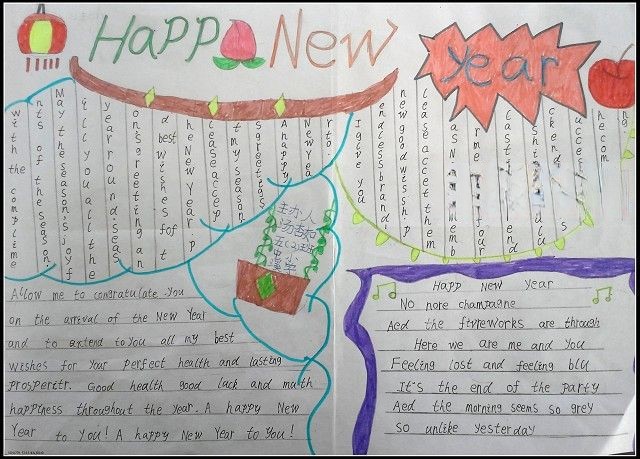 HAPP New
Year
with the complime
nts of the season
May the season's joy f
ill you all the
year round seas
on's greeting an
d best wishes fof t
he New Year p
lease accep
t my season
s greetings
A happy
New Yea
r to
I give you
endless brand-
new good wissh. p
lease accet them
as
rme four
lasti end
ckend
hecom
ing
主办人
五(2)班
Allow me to congratulate you
on the arrival of the New Year
and to extend to you all my best
wishes for your perfect health and lasting
prosperitr. Good health good luck and muth
happiness throughout the year. A happy New
Year to you! A happy New Year to You!
Happy New Year
No nore champagne
Aed the fireworks are through
Here we are me and You
Feeling lost and feeling blu
It's the end of the party
Aed the morning seems so grey
So unlike yesterday